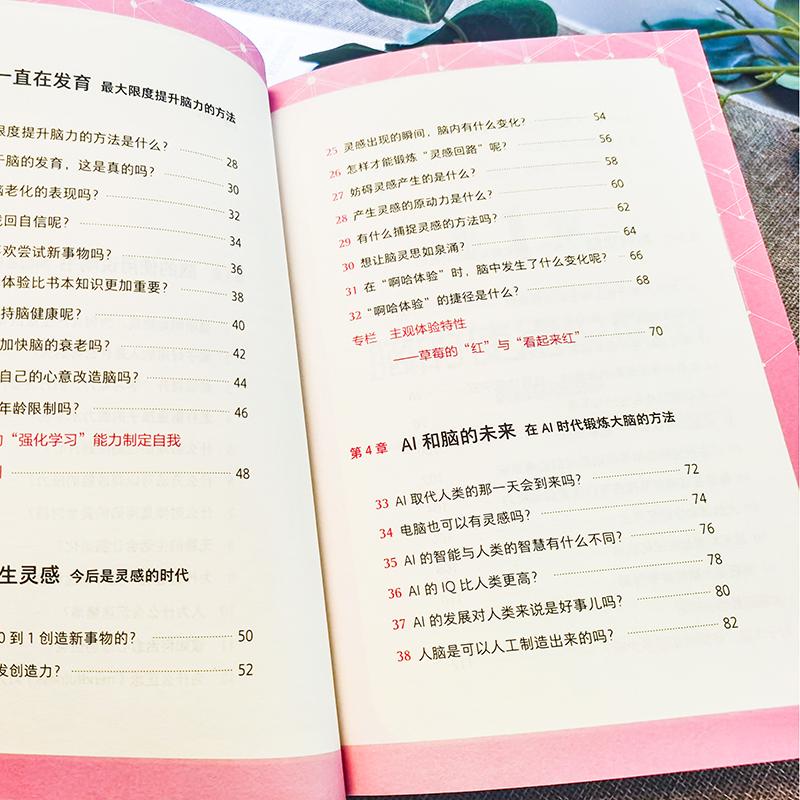 一直在发育 最大限度提升脑力的方法
限度提升脑力的方法是什么? 28
于脑的发育，这是真的吗? 30
脑老化的表现吗? 32
找回自信呢? 34
喜欢尝试新事物吗? 36
体验比书本知识更加重要? 38
持脑健康呢? 40
加快脑的衰老吗? 42
自己的心意改造脑吗? 44
年龄限制吗? 46
的“强化学习”能力制定自我
48
生灵感 今后是灵感的时代
0 到 1 创造新事物的? 50
发创造力? 52
25 灵感出现的瞬间，脑内有什么变化? 54
26 怎样才能锻炼“灵感回路”呢? 56
27 妨碍灵感产生的是什么? 58
28 产生灵感的原动力是什么? 60
29 有什么捕捉灵感的方法吗? 62
30 想让脑灵思如泉涌? 64
31 在“啊哈体验”时，脑中发生了什么变化呢? 66
32 “啊哈体验”的捷径是什么? 68
专栏 主观体验特性
——草莓的“红”与“看起来红” 70
第 4 章 AI 和脑的未来 在 AI 时代锻炼大脑的方法
33 AI 取代人类的那一天会到来吗? 72
34 电脑也可以有灵感吗? 74
35 AI 的智能与人类的智慧有什么不同? 76
36 AI 的 IQ 比人类更高? 78
37 AI 的发展对人类来说是好事儿吗? 80
38 人脑是可以人工制造出来的吗? 82